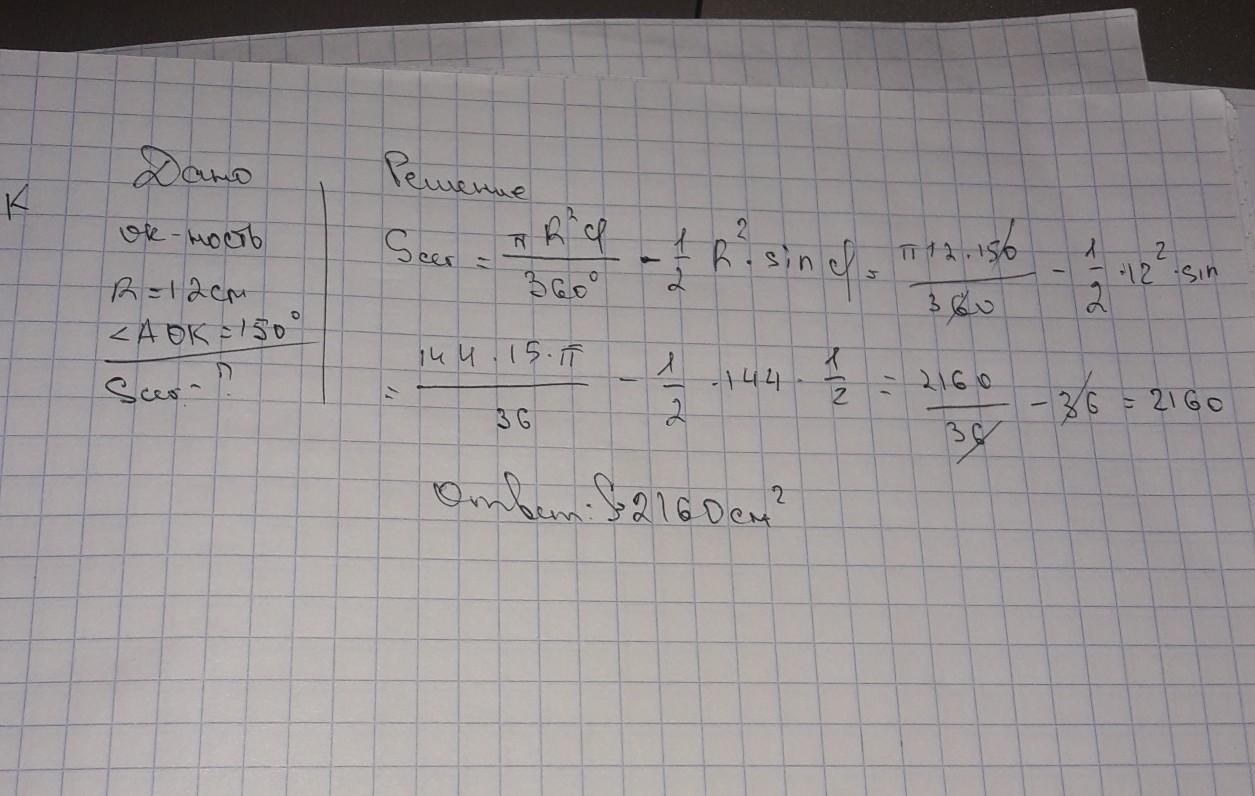 Дано
K
ок-ность
R = 12 см
<AOK = 150°
Sсег - ?
Решение
Sсег = πR²φ/360° - 1/2 R² · sin φ = π12·150/360 - 1/2 · 12² · sin
= 144·15·π/36 - 1/2 · 144 · 1/2 = 2160/36 - 36 = 2160
Ответ: S=2160 см²